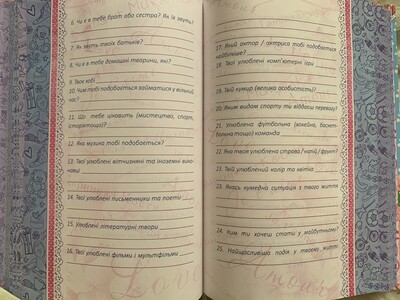 6. Чи є в тебе брат або сестра? Як їх звуть?
7. Як звуть твоїх батьків?
8. Чи є в тебе домашні тварини, які?
9. Твоє хобі
10. Чим тобі подобається займатися у вільний
час?
11. Що тебе цікавить (мистецтво, спорт,
стороннощо)?
12. Яка музика тобі подобається?
13. Твої улюблені вітчизняні та іноземні вико-
навці
14. Твої улюблені письменники та поети
15. Улюблені літературні твори
16. Твої улюблені фільми і мультфільми
17. Який актор / актриса тобі подобається
найбільше?
18. Твої улюблені комп'ютерні ігри
19. Твій кумир (велика особистість)?
20. Яким видам спорту ти віддаєш перевагу?
21. Улюблена футбольна (хокейна, баскет-
больна тощо) команда
22. Яка твоя улюблена справа / напій / фрукт?
23. Твій улюблений колір та квітка
23. Якась кумедна ситуація з твого життя
24. Ким ти хочеш стати у майбутньому?
25. Найщасливіша подія у твоєму житті
Love